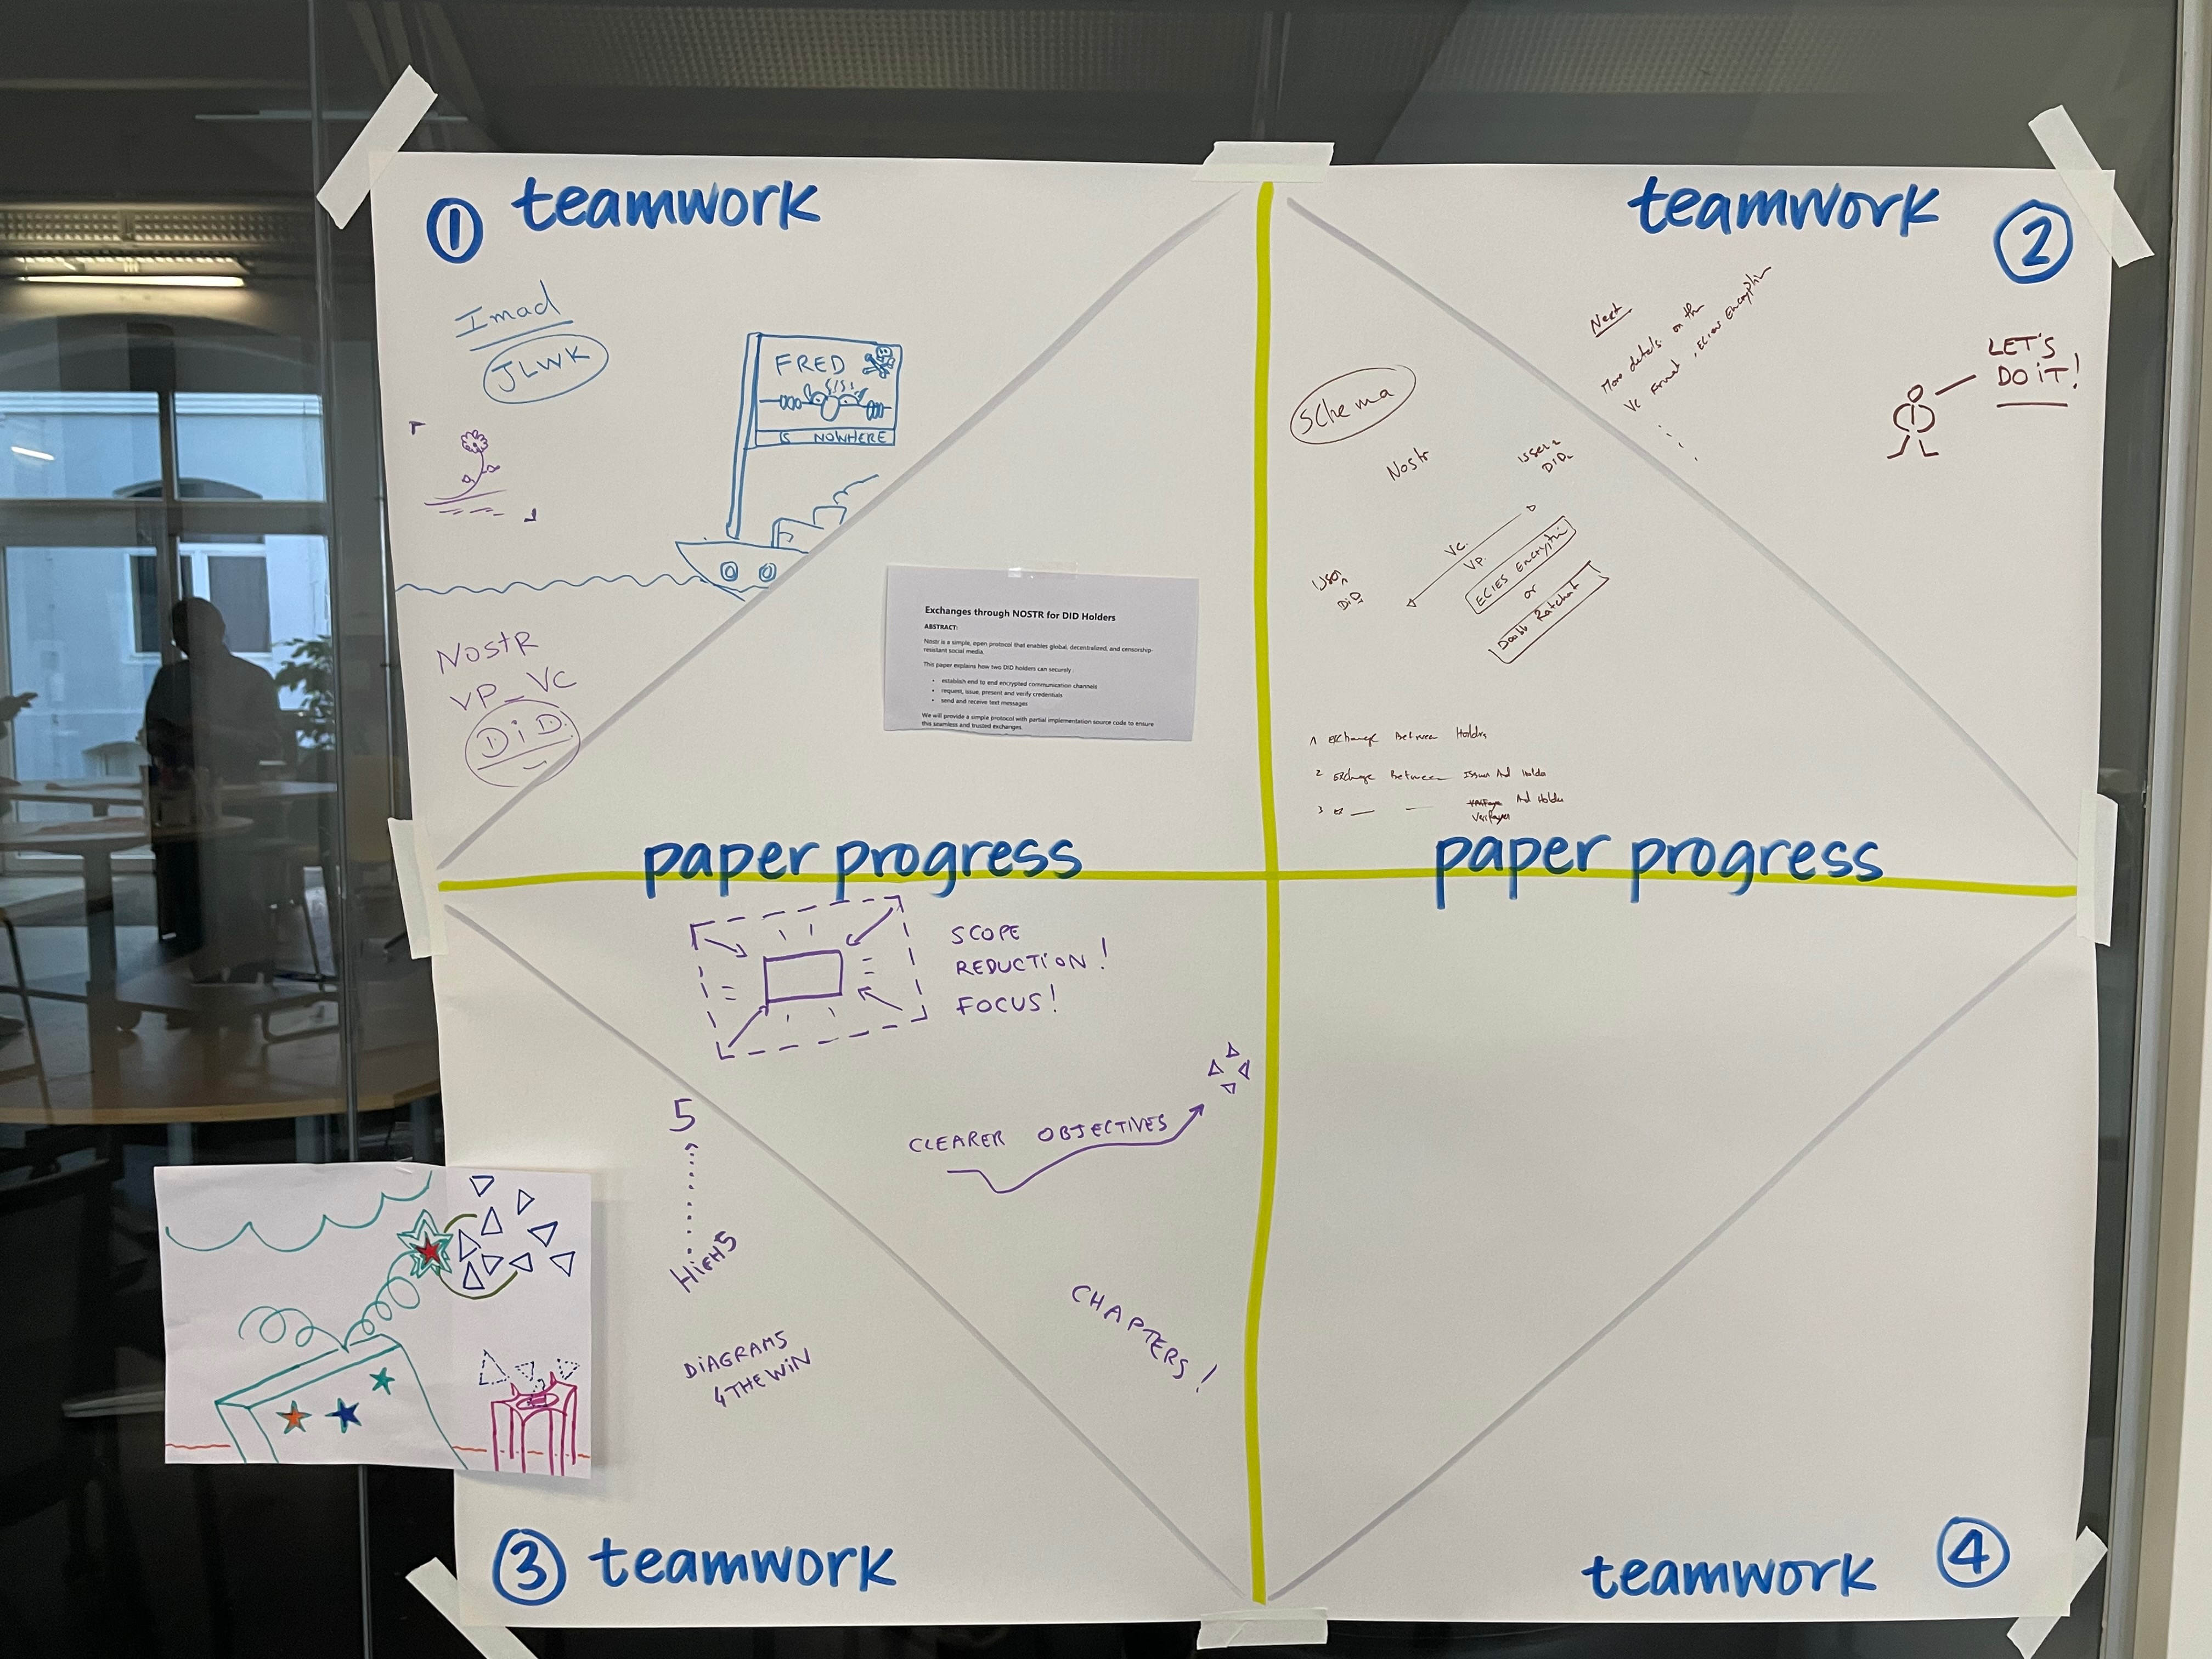 ① teamwork
Imad
JLWK
FRED
IS NOWHERE
NOSTR
VP_VC
DiD
Exchanges through NOSTR for DID Holders
ABSTRACT:
Nostr is a simple, open protocol that enables global, decentralized, and censorship-
resistant social media.
This paper explains how two DID holders can securely :
• establish end to end encrypted communication channels
• request, issue, present and verify credentials
• send and receive text messages
We will provide a simple protocol with partial implementation source code to ensure
this seamless and trusted exchanges
paper progress
teamwork ②
Next
More details on the
VC Format, ECIES Encryption
LET'S
DO iT!
Schema
Nostr
User 2
DID2
VC.
VP.
ECIES Encryption
or
Double Ratchet
User 1
DiD1
1 Exchange Between Holders
2 Exchange Between Issuer And Holder
3 And Holder
paper progress
SCOPE
REDUCTION!
FOCUS!
CLEARER OBJECTIVES
5
HIGH5
DIAGRAMS
4THEWIN
CHAPTERS!
③ teamwork
teamwork ④